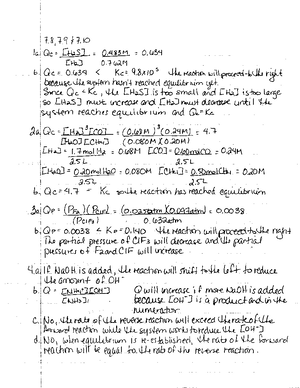 7.8, 7.9, 7.10
1a. Qc = [H₂S] = 0.483M = 0.634
[H₂] 0.762M
b. Qc = 0.634 < Kc = 9.3x10³ the reaction will proceed to the right
because the system hasn't reached equilibrium yet.
Since Qc < Kc, the [H₂S] is too small and [H₂] is too large
so [H₂S] must increase and [H₂] must decrease until the
system reaches equilibrium and Qc = Kc
2a. Qc = [H₂]³[CO] = (0.68M)³(0.24M) = 4.7
[H₂O][CH₄] (0.080M)(0.20M)
[H₂] = 1.7mol H₂ = 0.68M [CO] = 0.60molCO = 0.24M
2.5L 2.5L
[H₂O] = 0.20mol H₂O = 0.080M [CH₄] = 0.50molCH₄ = 0.20M
2.5L 2.5L
b. Qc = 4.7 = Kc so the reaction has reached equilibrium
3a. Qp = (PF₂)(PClF) = 0.0038
(PClF₃)
b. Qp = 0.0038 < Kp = 0.140 the reaction will proceed to the right
The partial pressure of ClF₃ will decrease and the partial
pressures of F₂ and ClF will increase.
4.a. If NaOH is added, the reaction will shift to the left to reduce
the amount of OH⁻
b. Q = [NH₄⁺][OH⁻] Q will increase if more NaOH is added
[NH₃] because [OH⁻] is a product and in the
numerator.
c. No, the rate of the reverse reaction will exceed the rate of the
forward reaction while the system works to reduce the [OH⁻]
d. No, when equilibrium is re-established, the rate of the forward
reaction will be equal to the rate of the reverse reaction.